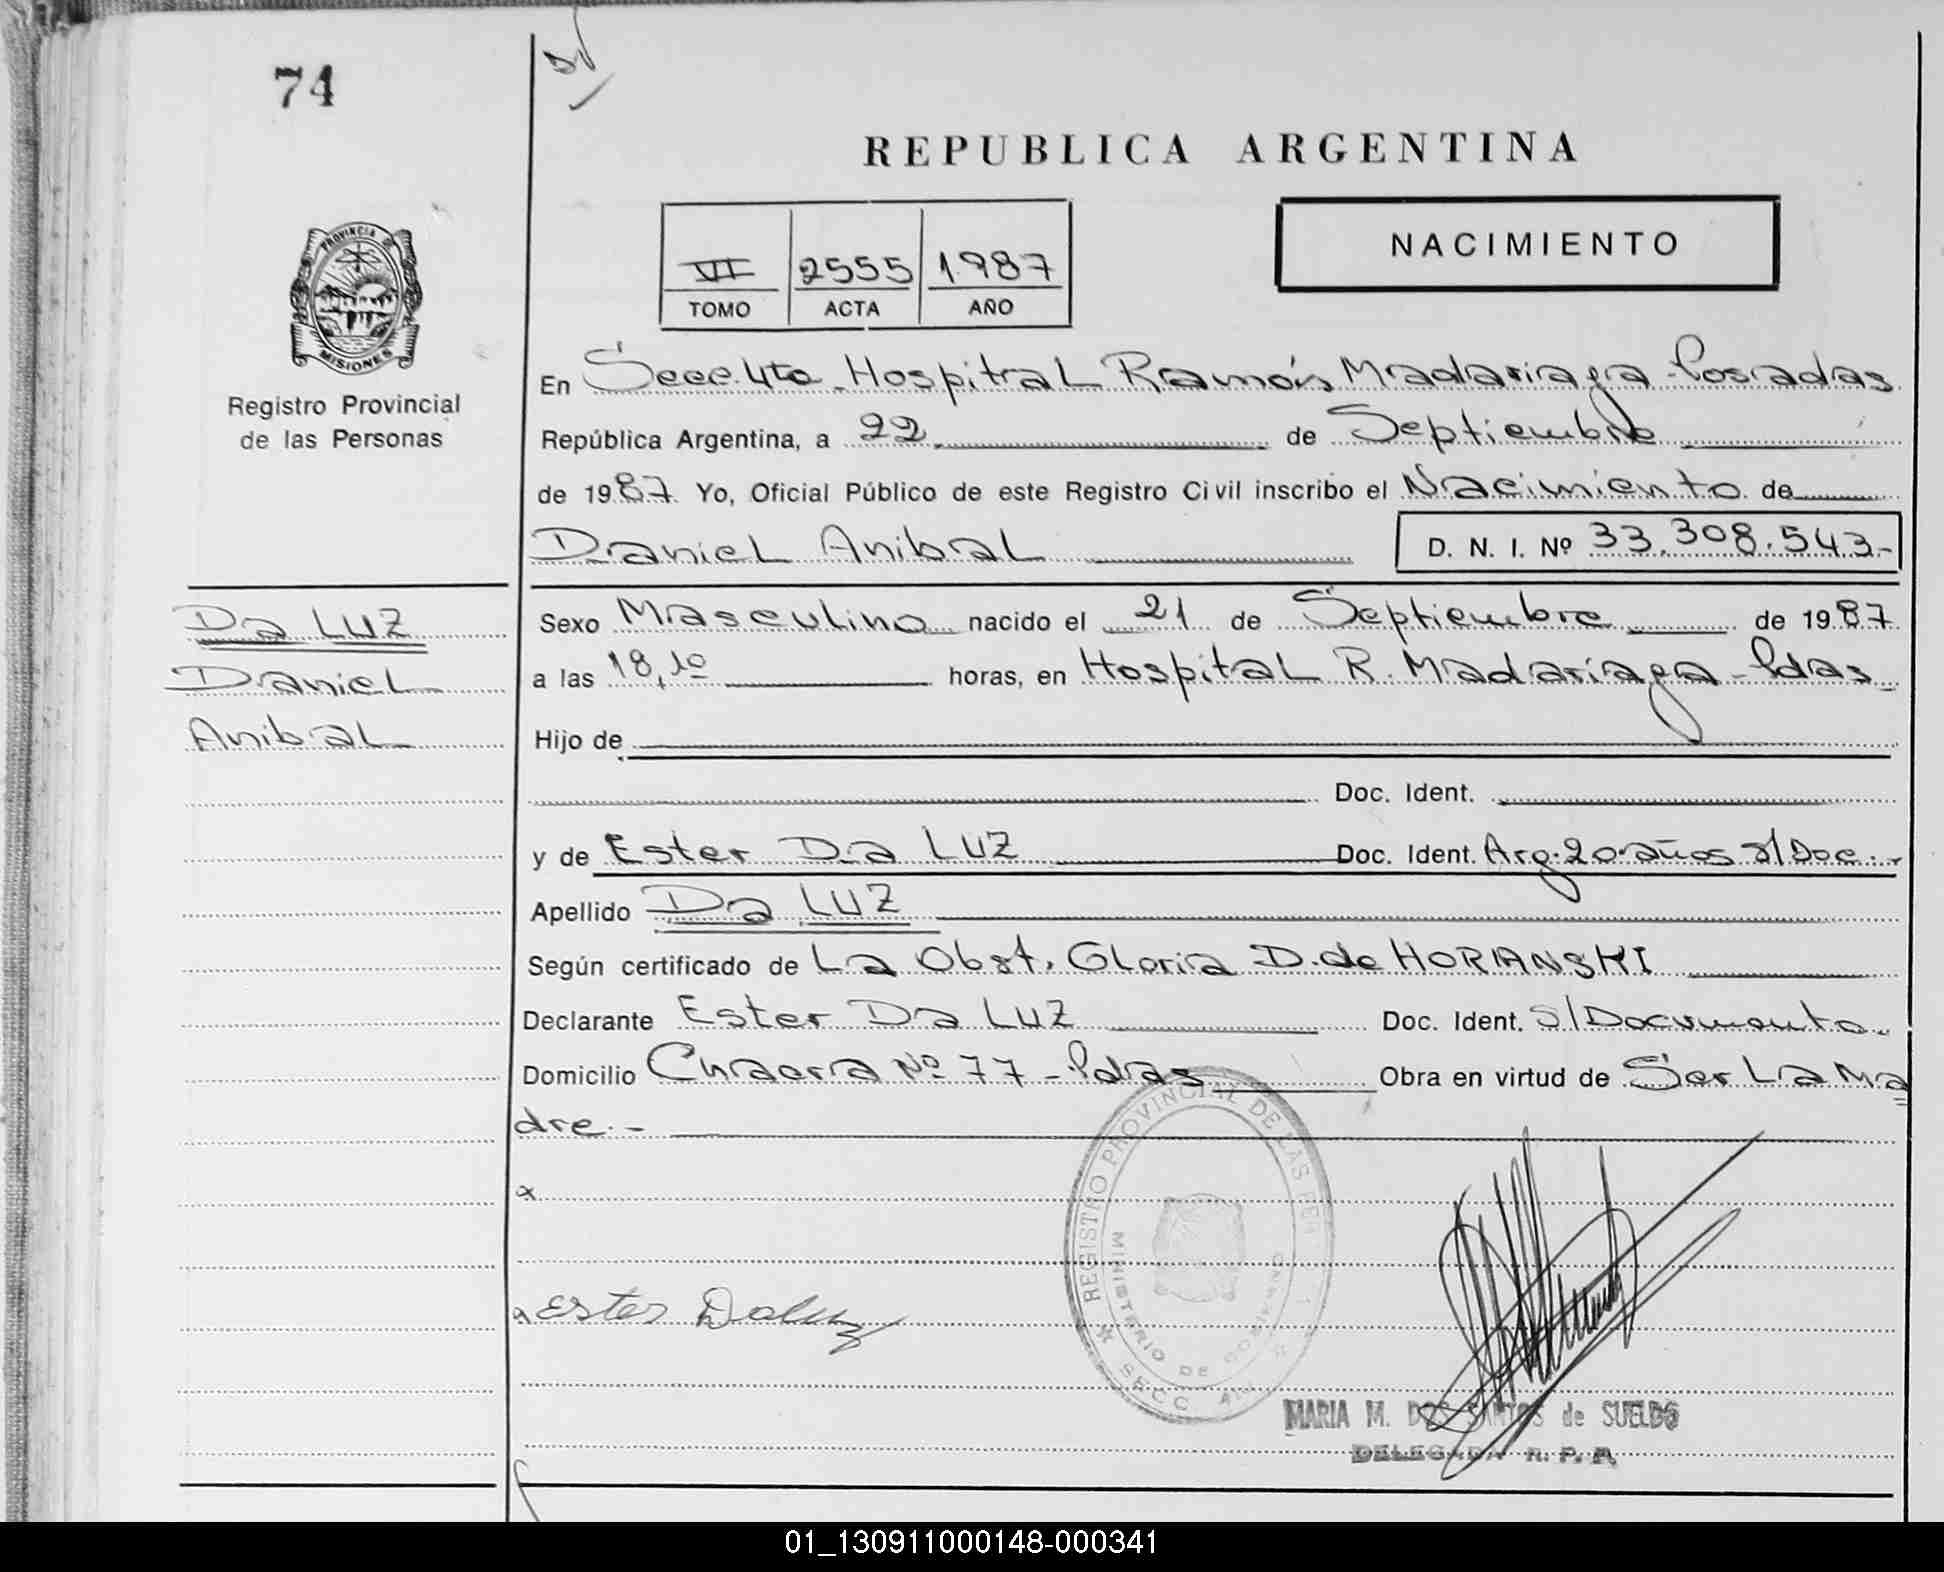 74
REPUBLICA ARGENTINA
NACIMIENTO
VI 2555 1987
TOMO ACTA AÑO
PROVINCIA DE
MISIONES
Registro Provincial
de las Personas
En Secc. 4ta. Hospital Ramón Madariaga - Posadas
República Argentina, a 22 de Septiembre
de 1987. Yo, Oficial Público de este Registro Civil inscribo el Nacimiento de
Daniel Anibal D. N. I. Nº 33.308.543.-
Da LUZ
Daniel
Anibal
Sexo Masculino nacido el 21 de Septiembre de 1987
a las 18,10 horas, en Hospital R. Madariaga - Pdas
Hijo de
Doc. Ident.
y de Ester Da LUZ Doc. Ident. Arg. 20 años s/Doc.-
Apellido Da LUZ
Según certificado de La Obst. Gloria D. de HORIANSKI
Declarante Ester Da LUZ Doc. Ident. S/Documento.
Domicilio Chacra Nº 77 - Pdas Obra en virtud de Ser La Ma
dre.-
x
x Ester Daluz
REGISTRO PROVINCIAL DE LAS PER
MINISTERIO DE GOBIERNO
SECC.
MARIA M. DOS SANTOS de SUELDO
DELEGADA R. P. P.
01_130911000148-000341